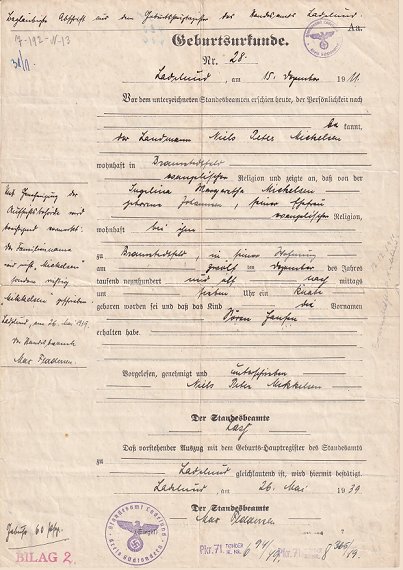 Beglaubigte Abschrift aus dem Geburtsregister des Standesamts Ladelund
Aa.
Geburtsurkunde.
Nr. 28.
Ladelund, am 15. Dezember 1911.
Vor dem unterzeichneten Standesbeamten erschien heute, der Persönlichkeit nach
be kannt,
der Landmann Niels Peter Mickelsen
wohnhaft in Bramstedtfeld
evangelischer Religion und zeigte an, daß von der
Margaretha Mickelsen
geborene Johannsen, seiner Ehefrau
evangelischer Religion,
wohnhaft bei ihm
zu Bramstedtfeld, in seiner Wohnung
am zwölften Dezember des Jahres
tausend neunhundert und elf nach mittags
um sieben Uhr ein Knabe
geboren worden sei und daß das Kind die Vornamen
Sören Hansen
erhalten habe.
Vorgelesen, genehmigt und unterschrieben
Niels Peter Mekkelsen
Der Standesbeamte
Daß vorstehender Auszug mit dem Geburts-Hauptregister des Standesamts
zu
Ladelund gleichlautend ist, wird hiermit bestätigt.
Ladelund, am 26. Mai 1939
Der Standesbeamte
Mit Genehmigung der
Aufsichtsbehörde wird
vermerkt:
der Familienname
wird nicht "Mickelsen"
sondern richtig
Mekkelsen geschrieben.
Ladelund, am 26. Mai 1939
der Standesbeamte
Standesamt Ladelund
Kreis Südtondern
BILAG 2.
Pkr. 71.
Pkr. 71.